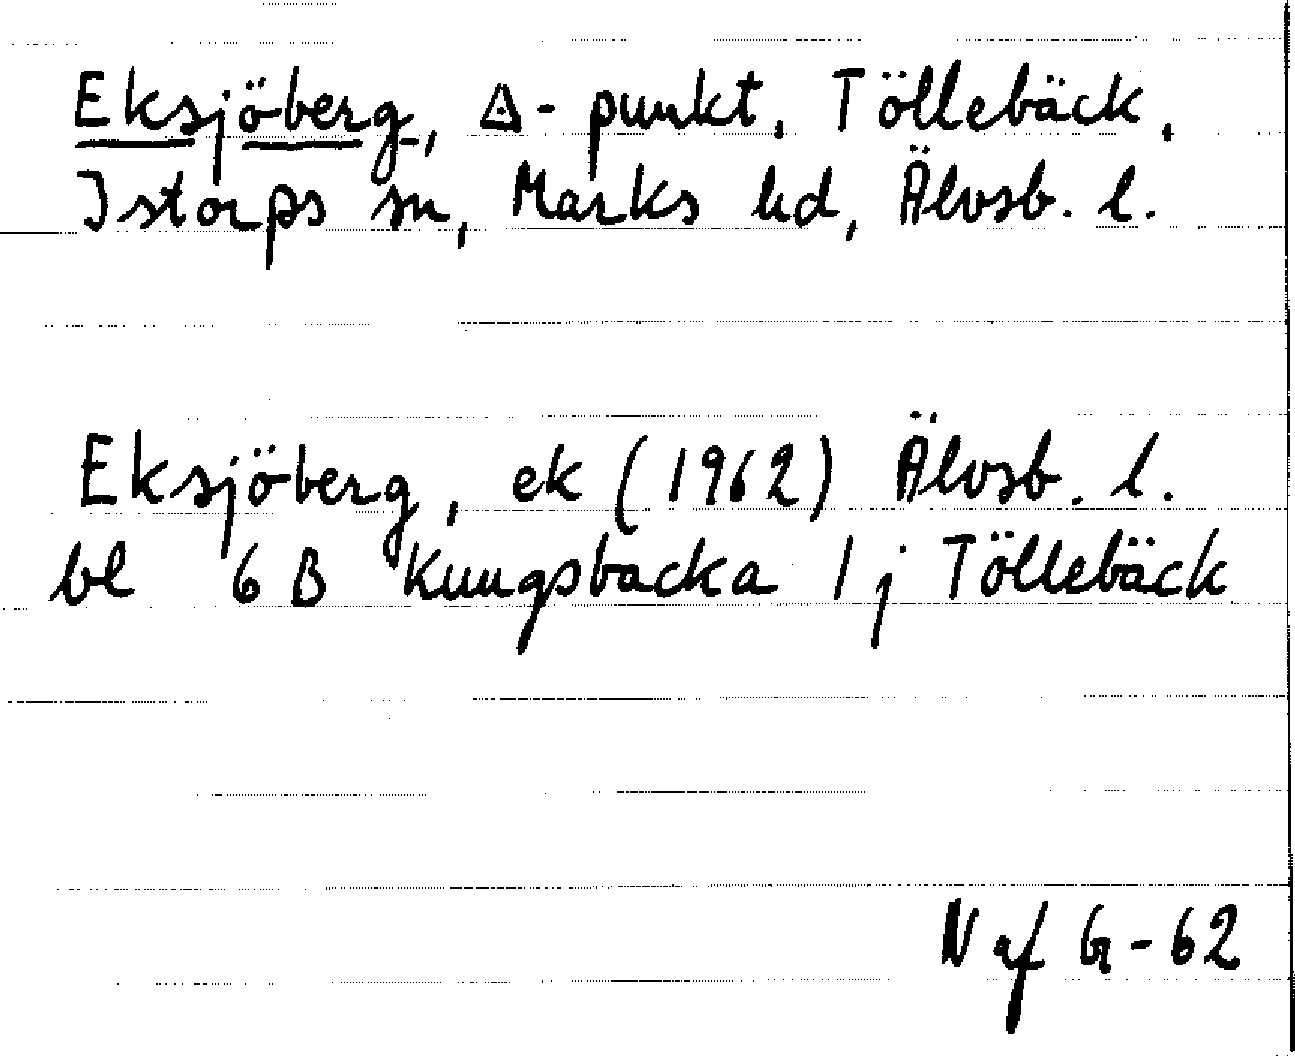 Eksjöberg, △-punkt, Töllebäck,
Istorps sn, Marks hd, Älvsb. l.
Eksjöberg, ek (1962) Älvsb. l.
bl 6 B Kungsbacka 1 j Töllebäck
N af G-62